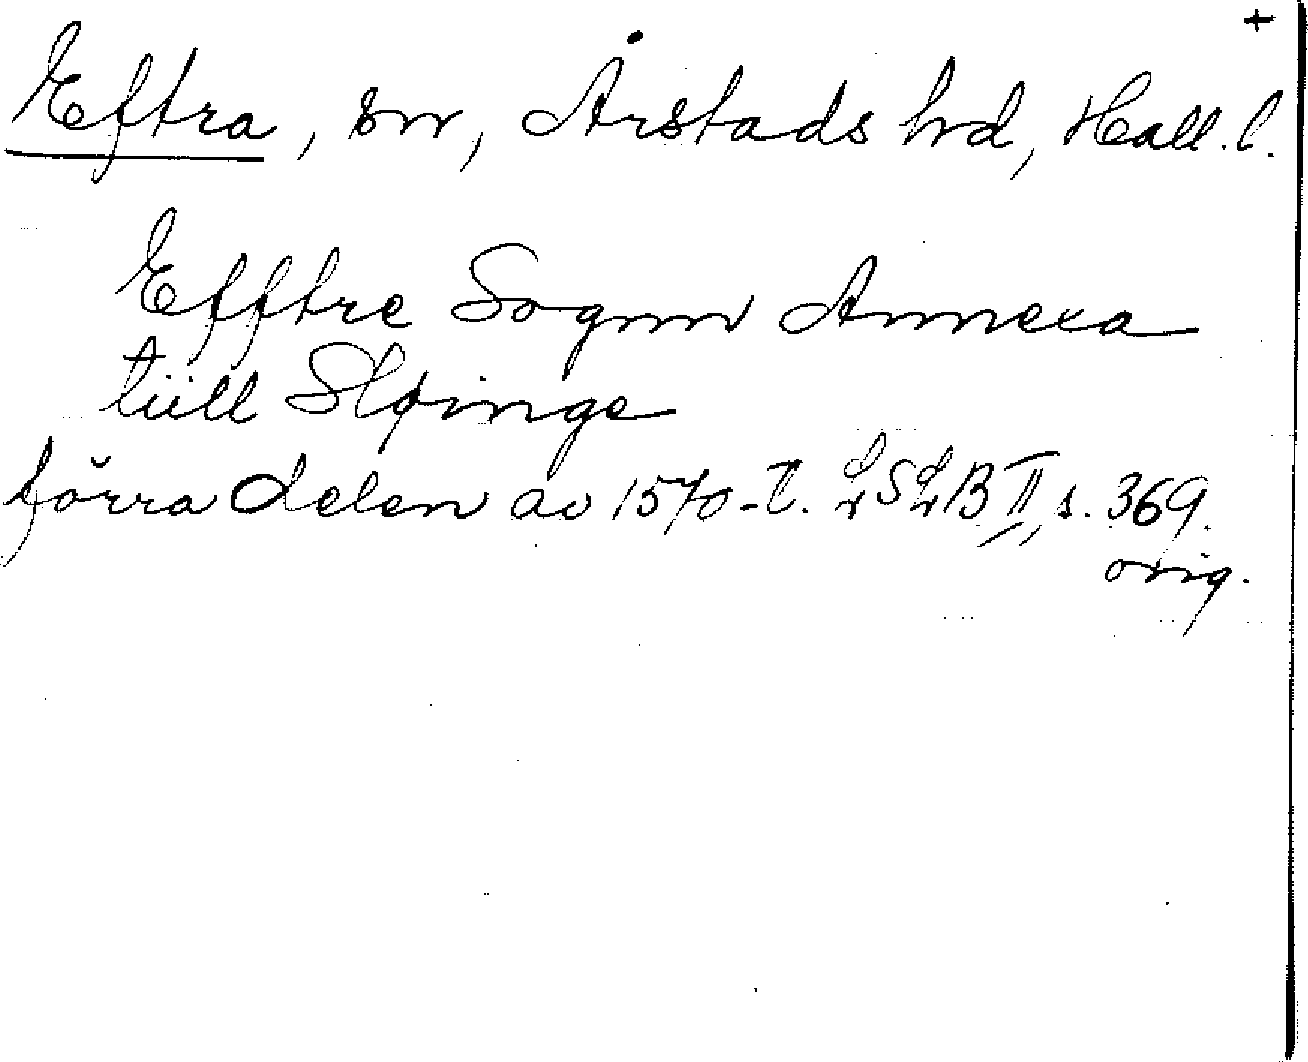 +
Eftra, sn, Årstads hd, Hall. l.
Efftre Sognn Annexa
tiill Sløinge
förra delen av 1570-t. LSLB II, s. 369.
orig.